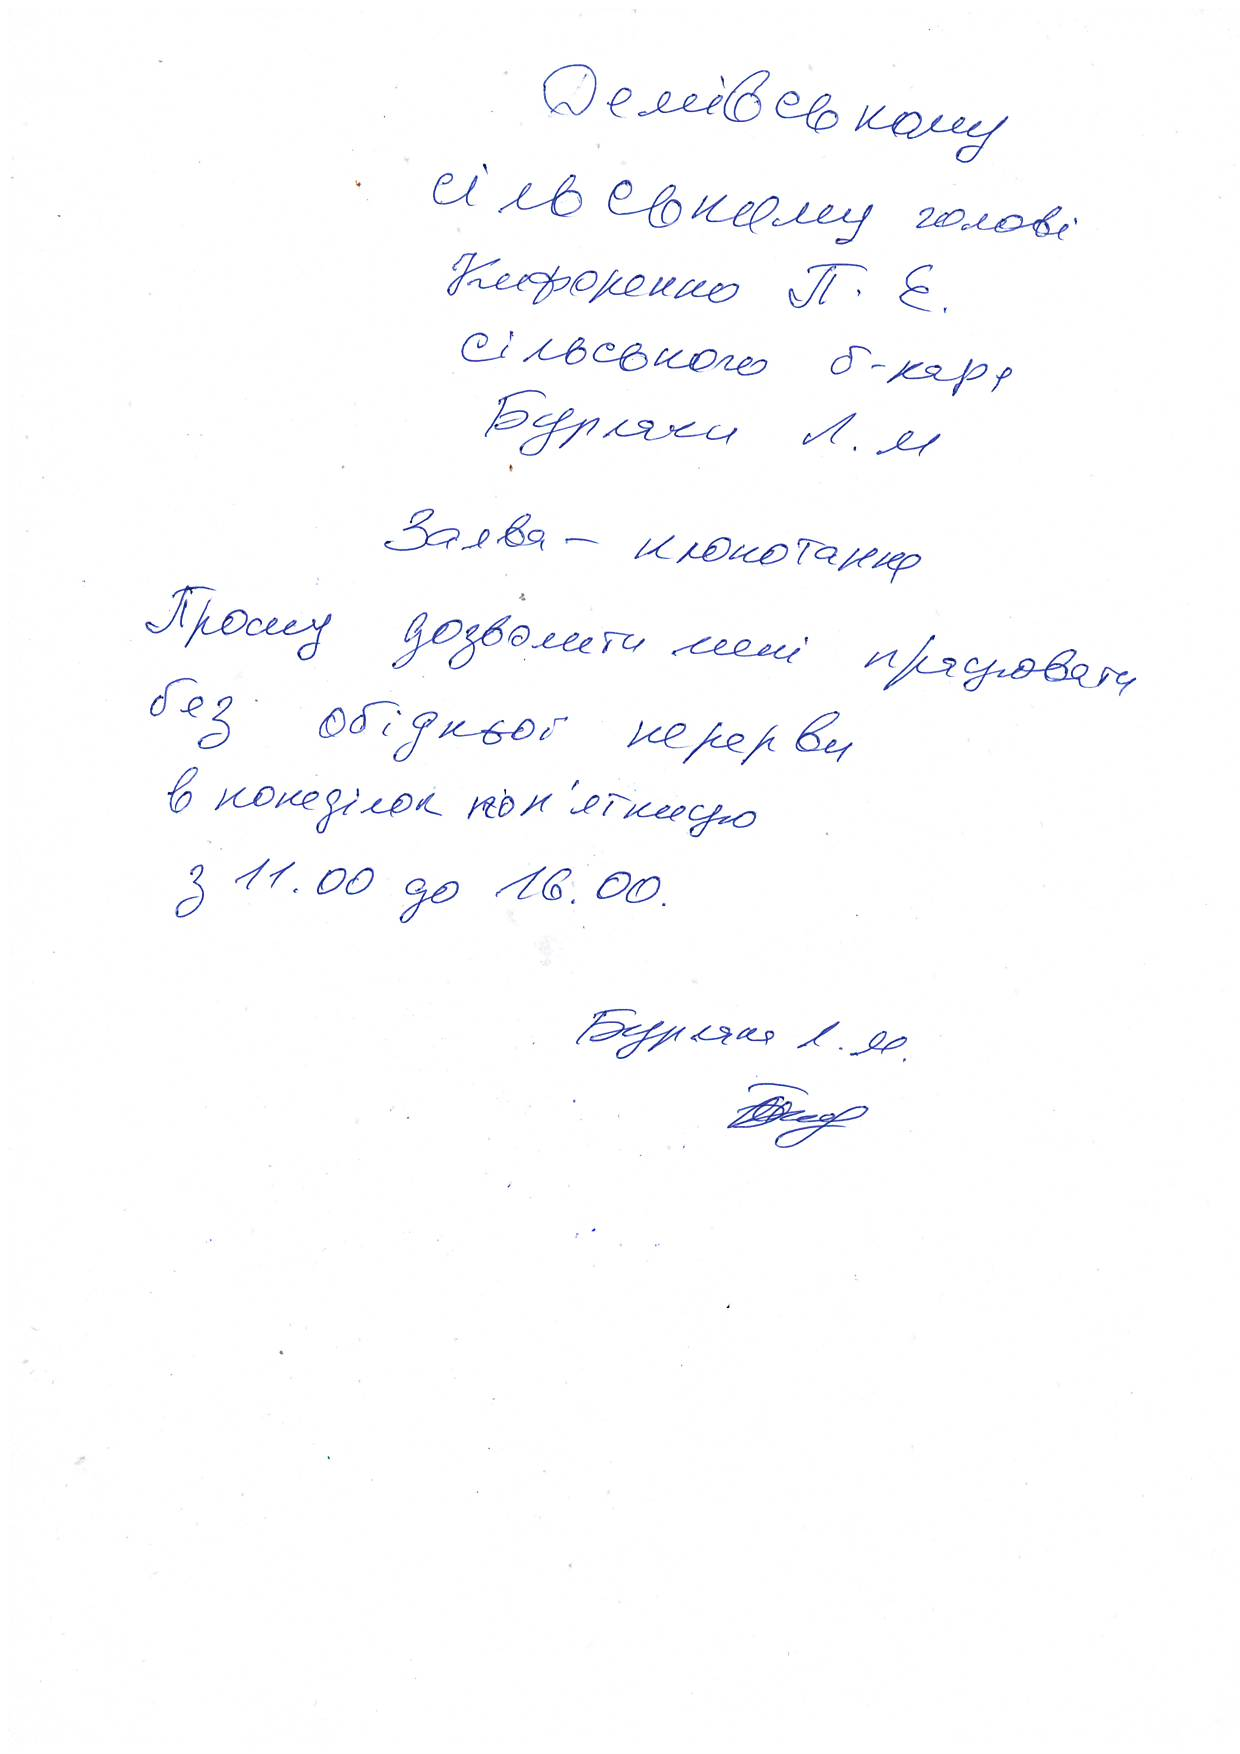 Демівському
сільському голові
Никоненко П. Є.
сільського б-каря
Бурлачи Л. М
Заява – клопотання
Прошу дозволити мені працювати
без обідньої перерви
в понеділок п'ятницю
з 11.00 до 16.00.
Бурлака Л. М.